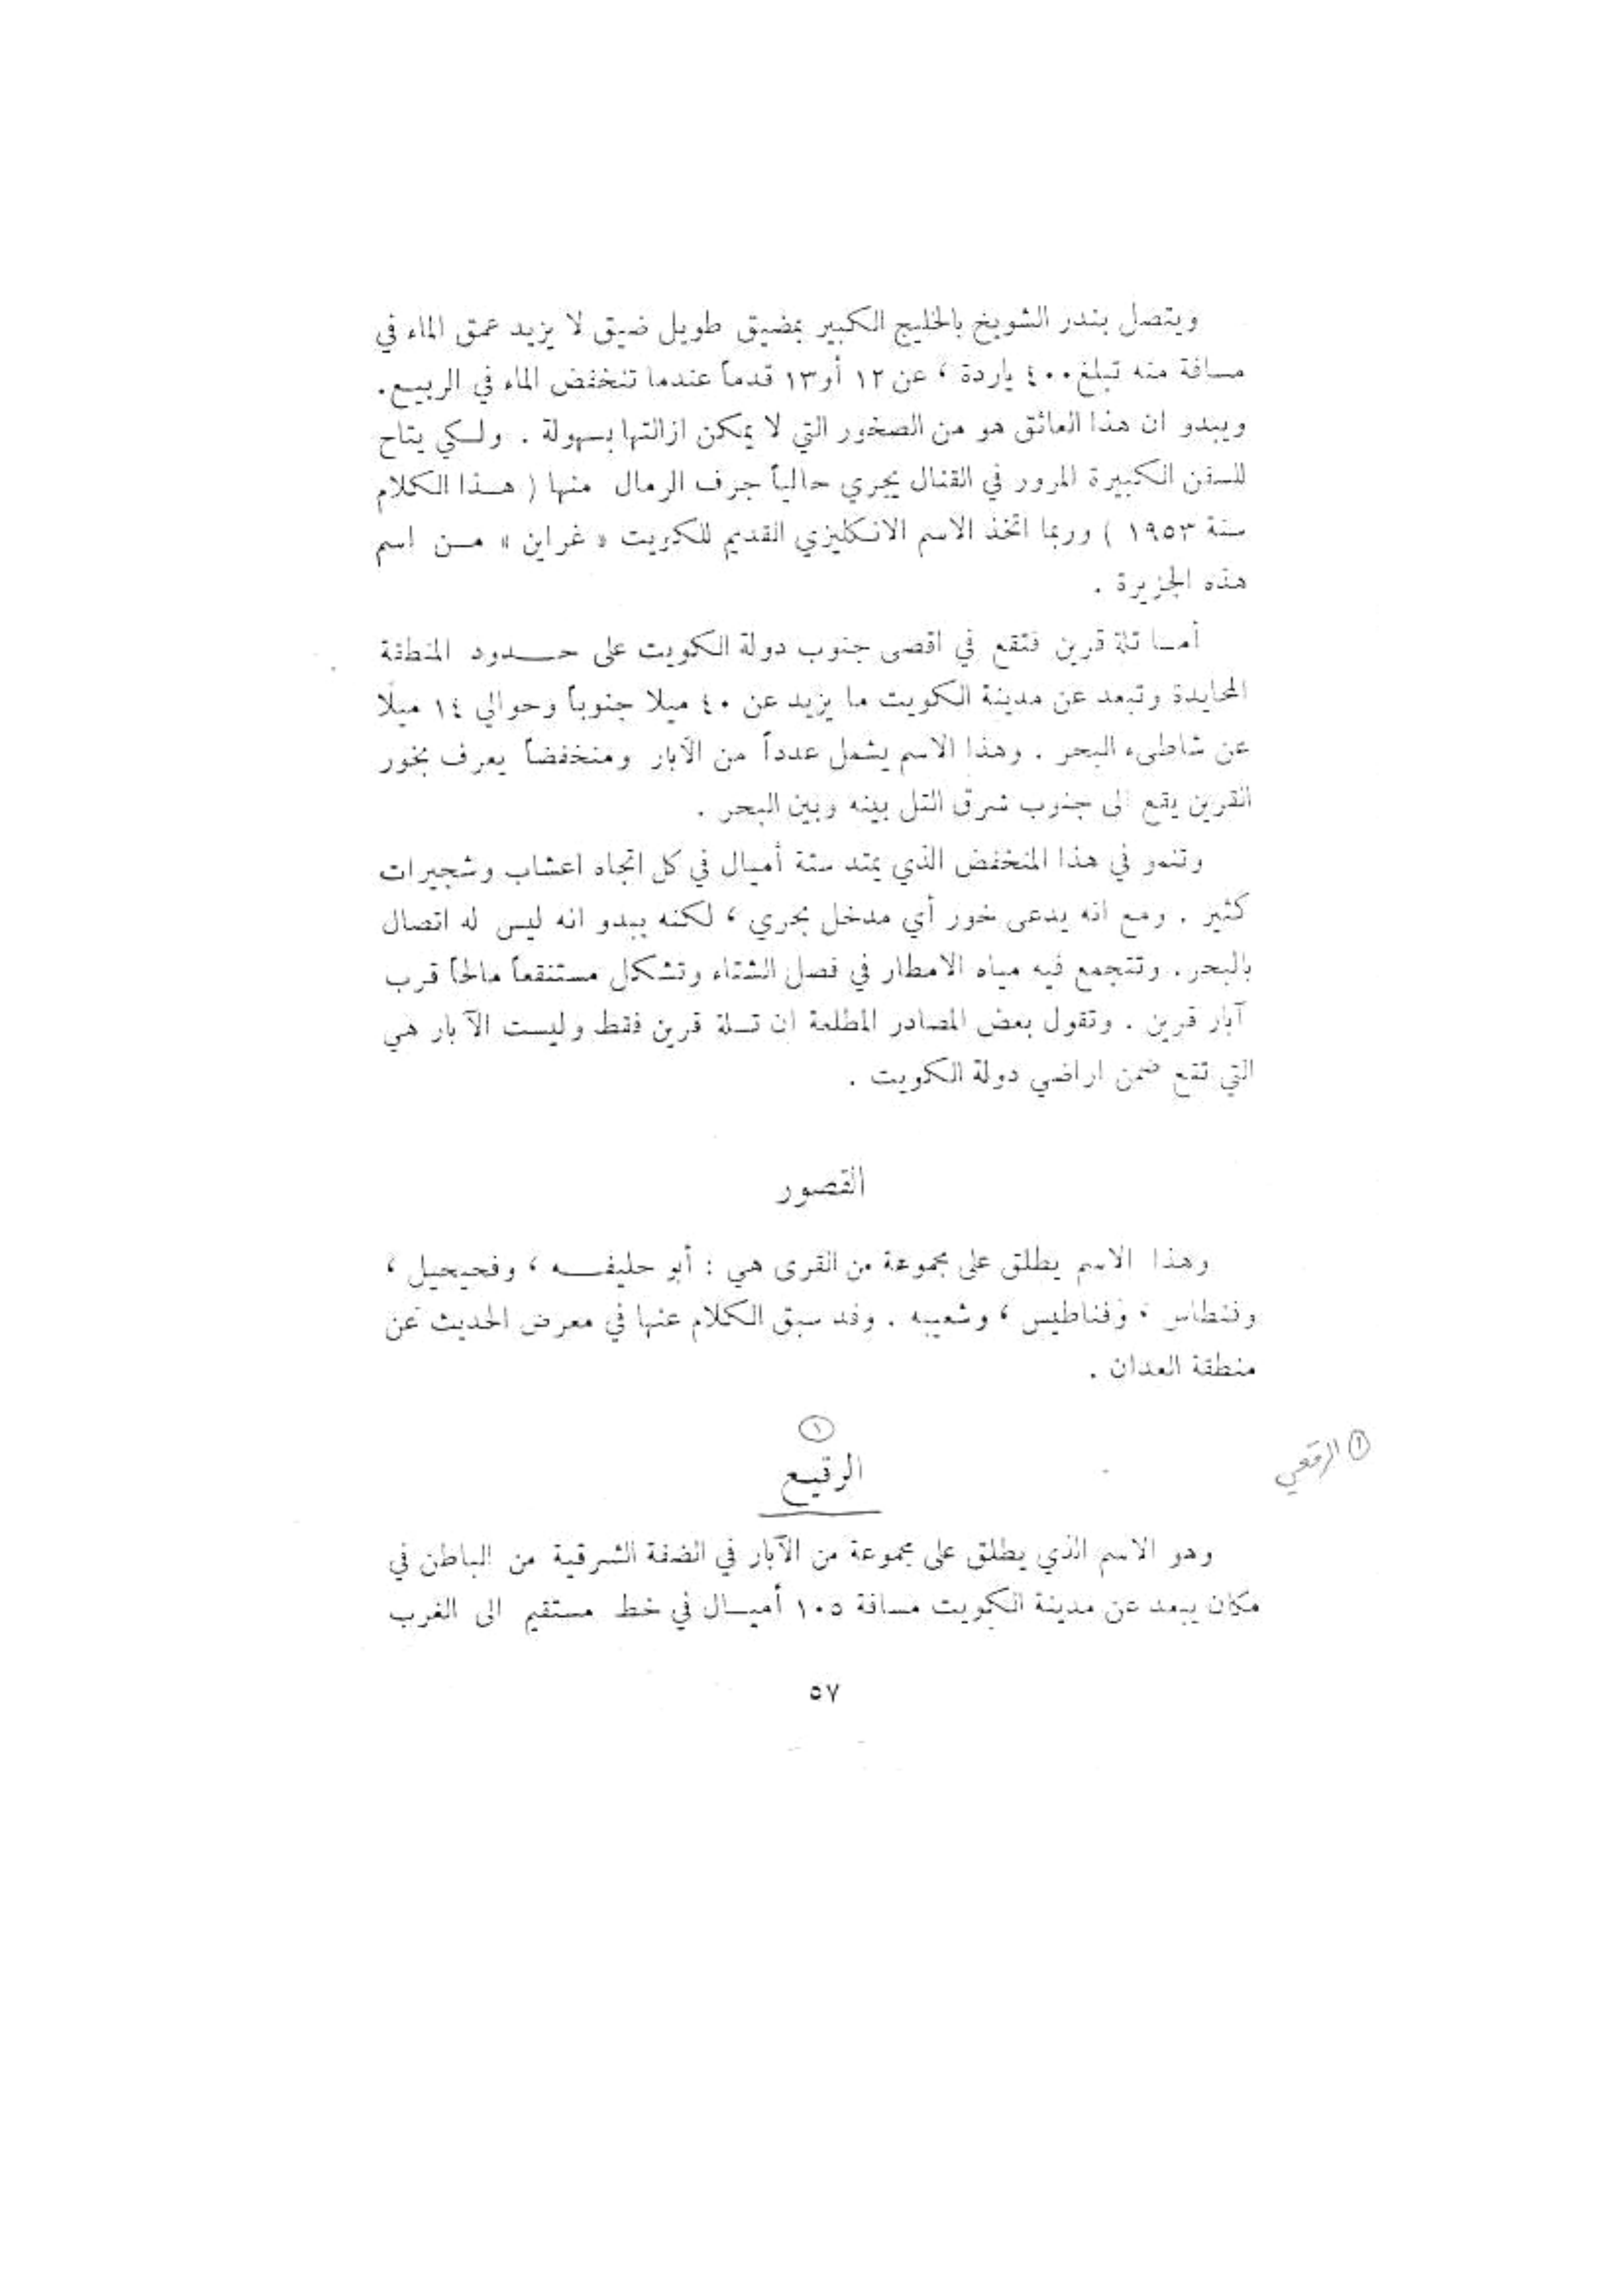 ويتصل بندر الشويخ بالخليج الكبير بمضيق طويل ضيق لا يزيد عمق الماء في
مسافة منه تبلغ ٤٠٠ ياردة ، عن ١٢ أو ١٣ قدماً عندما تنخفض الماء في الربيع .
ويبدو ان هذا العائق هو من الصخور التي لا يمكن ازالتها بسهولة . ولكي يتاح
للسفن الكبيرة المرور في القنال يجري حالياً جرف الرمال منها ( هذا الكلام
سنة ١٩٥٣ ) وربما اتخذ الاسم الانكليزي القديم للكويت « غراين » من اسم
هذه الجزيرة .
أما تلة قرين فتقع في اقصى جنوب دولة الكويت على حدود المنطقة
المحايدة وتبعد عن مدينة الكويت ما يزيد عن ٤٠ ميلا جنوباً وحوالي ١٤ ميلًا
عن شاطىء البحر . وهذا الاسم يشمل عدداً من الآبار ومنخفضاً يعرف بخور
القرين يقع الى جنوب شرق التل بينه وبين البحر .
وتنمو في هذا المنخفض الذي يمتد ستة أميال في كل اتجاه اعشاب وشجيرات
كثير . ومع انه يدعى خور أي مدخل بحري ، لكنه يبدو انه ليس له اتصال
بالبحر . وتتجمع فيه مياه الامطار في فصل الشتاء وتشكل مستنقعاً مالحاً قرب
آبار قرين . وتقول بعض المصادر المطلعة ان تلة قرين فقط وليست الآبار هي
التي تقع ضمن اراضي دولة الكويت .
القصور
وهذا الاسم يطلق على مجموعة من القرى هي : أبو حليفه ، وفحيحيل ،
وفنطاس ، وفناطيس ، وشعيبه . وقد سبق الكلام عنها في معرض الحديث عن
منطقة العدان .
١
الرقيع
١ الرقعي
وهو الاسم الذي يطلق على مجموعة من الآبار في الضفة الشرقية من الباطن في
مكان يبعد عن مدينة الكويت مسافة ١٠٥ أميال في خط مستقيم الى الغرب
٥٧